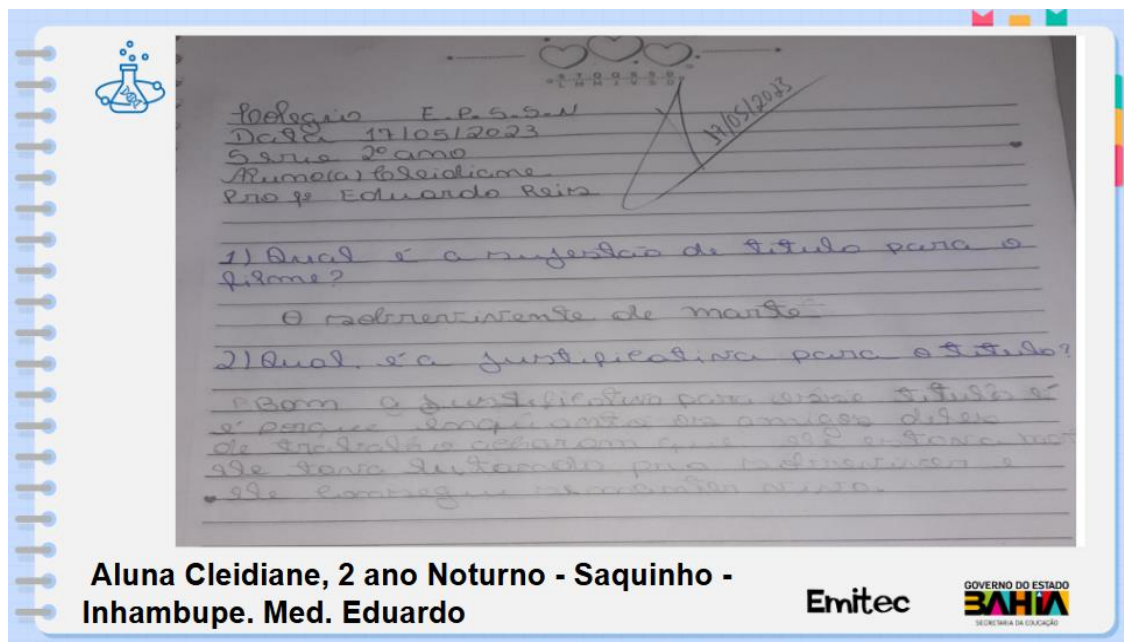 S T Q Q S S D
L M M J V S D
Colegio E.P.S.S.N
Data 17/05/2023
Serie 2º ano
Aluno(a) Cleidiane
Prof Eduardo Reis
17/05/2023
1) Qual é a sujestão de titulo para o
filme?
O sobrevivente de marte
2) Qual é a justificativa para o titulo?
Bom a justificativa para titulo é
é porque enquanto os amigos deles
de trabalho acharam que ele estava
ele tava lutando pra sobreviver e
ele consegui vivo.
Aluna Cleidiane, 2 ano Noturno - Saquinho -
Inhambupe. Med. Eduardo
Emitec
GOVERNO DO ESTADO
BAHIA
SECRETARIA DA EDUCAÇÃO